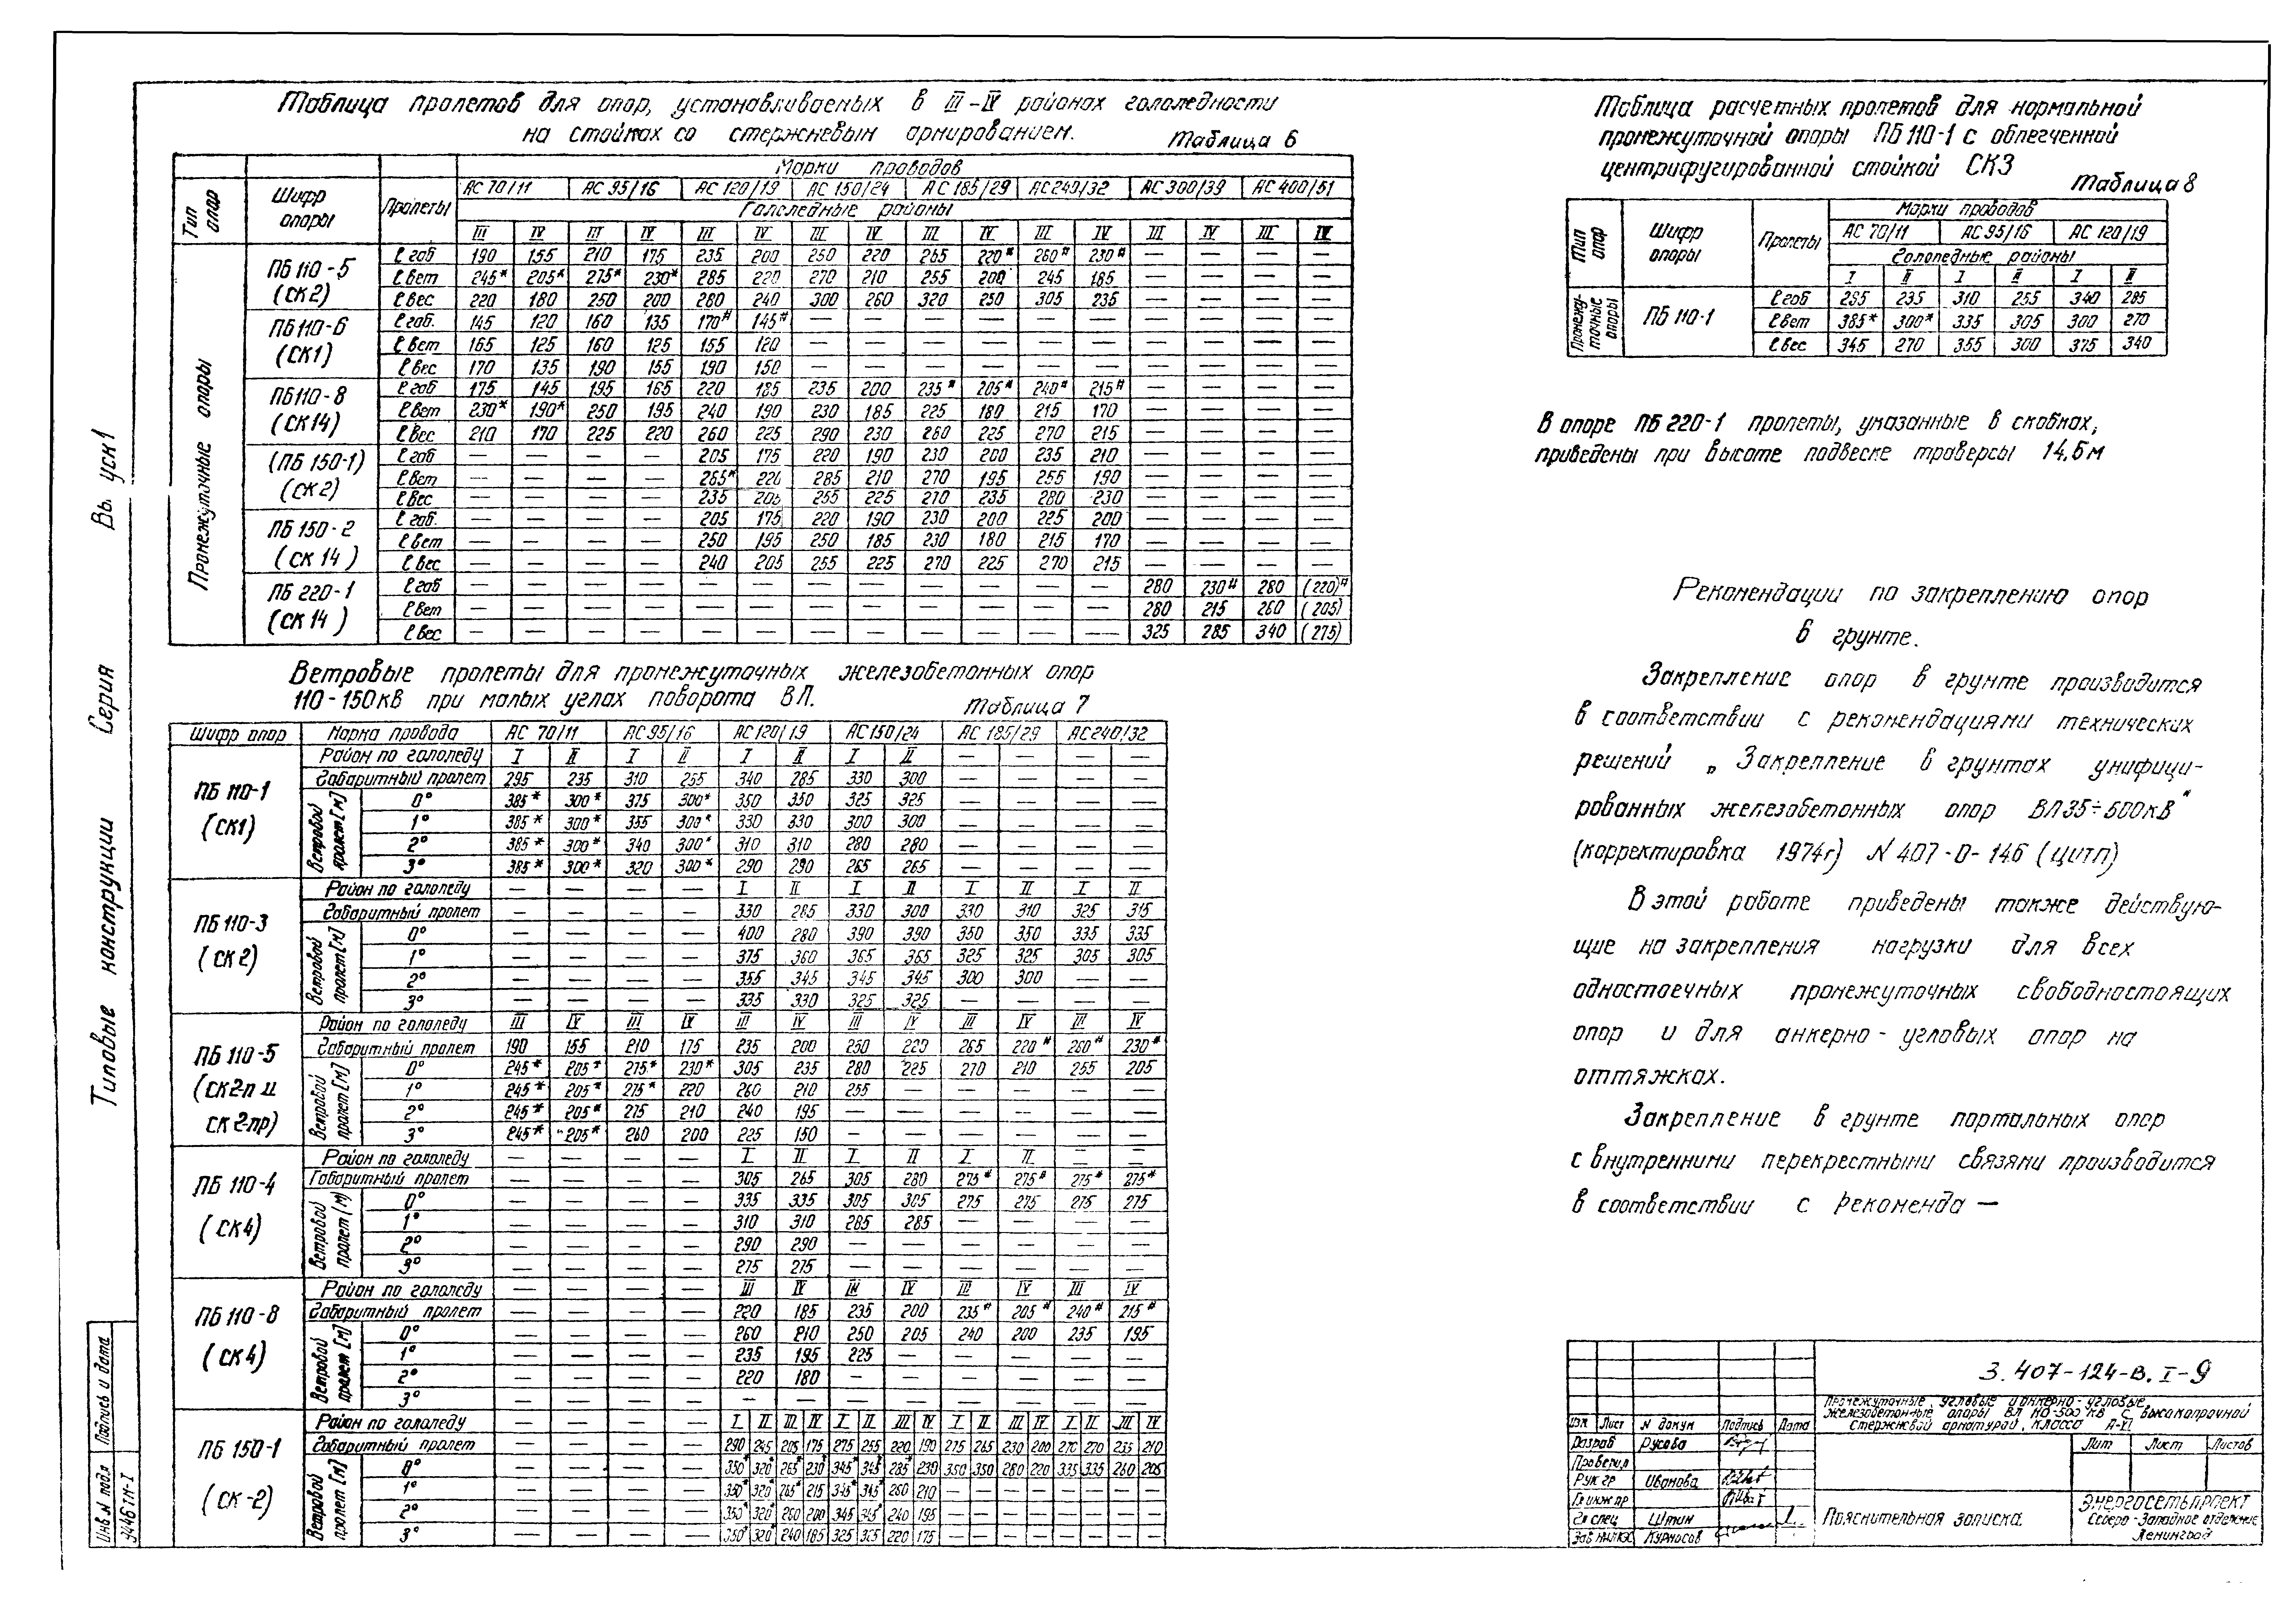 Таблица пролетов для опор, устанавливаемых в III-IV районах гололедности
на стойках со стержневым армированием.
Таблица 6
Тип опор | Шифр опоры | Пролеты | Марки проводов
АС 70/11 | АС 95/16 | АС 120/19 | АС 150/24 | АС 185/29 | АС 240/32 | АС 300/39 | АС 400/51
Гололедные районы
III IV III IV III IV III IV III IV III IV III IV III IV
Промежуточные опоры
ПБ 110-5 (СК2)
ℓ габ 190 155 210 175 235 200 250 220 265 220* 260* 230* — — — —
ℓ вет 245* 205* 275* 230* 285 220 270 210 255 200 245 185 — — — —
ℓ вес 220 180 250 200 280 240 300 260 320 250 305 235 — — — —
ПБ110-6 (СК1)
ℓ габ. 145 120 160 135 170* 145* — — — — — — — — — —
ℓ вет 165 125 160 125 155 120 — — — — — — — — — —
ℓ вес 170 135 190 155 190 150 — — — — — — — — — —
ПБ110-8 (СК14)
ℓ габ 175 145 195 165 220 185 235 200 235* 205* 240* 215* — — — —
ℓ вет 230* 190* 250 195 240 190 230 185 225 180 215 170 — — — —
ℓ вес 210 170 225 220 260 225 290 230 260 225 270 215 — — — —
(ПБ 150-1) (СК2)
ℓ габ — — — — 205 175 220 190 230 200 235 210 — — — —
ℓ вет — — — — 265* 220 285 210 270 195 255 190 — — — —
ℓ вес — — — — 235 205 255 225 270 235 280 230 — — — —
ПБ 150-2 (СК 14)
ℓ габ. — — — — 205 175 220 190 230 200 225 200 — — — —
ℓ вет — — — — 250 195 250 185 230 180 215 170 — — — —
ℓ вес — — — — 240 205 255 225 270 225 270 215 — — — —
ПБ 220-1 (СК14)
ℓ габ — — — — — — — — — — — — 280 230* 280 (220)*
ℓ вет — — — — — — — — — — — — 280 215 260 (205)
ℓ вес — — — — — — — — — — — — 325 285 340 (275)
Ветровые пролеты для промежуточных железобетонных опор
110-150кВ при малых углах поворота ВЛ.
Таблица 7
Шифр опор | Марка провода | АС 70/11 | АС95/16 | АС120/19 | АС150/24 | АС 185/29 | АС240/32
ПБ 110-1 (СК1)
Район по гололеду I II I II I II I II — — — —
Габаритный пролет 295 235 310 255 340 285 330 300 — — — —
Ветровой пролет [м]
0° 385* 300* 375 300* 350 350 325 325 — — — —
1° 385* 300* 355 300* 330 330 300 300 — — — —
2° 385* 300* 340 300* 310 310 280 280 — — — —
3° 385* 300* 320 300* 290 290 265 265 — — — —
ПБ 110-3 (СК2)
Район по гололеду — — — — I II I II I II I II
Габаритный пролет — — — — 330 285 330 300 330 310 325 315
Ветровой пролет [м]
0° — — — — 400 280 390 390 350 350 335 335
1° — — — — 375 360 365 365 325 325 305 305
2° — — — — 355 345 345 345 300 300 — —
3° — — — — 335 330 325 325 — — — —
ПБ 110-5 (СК2-п и СК2-пр)
Район по гололеду III IV III IV III IV III IV III IV III IV
Габаритный пролет 190 155 210 175 235 200 250 220 265 220* 260* 230*
Ветровой пролет [м]
0° 245* 205* 275* 230* 305 235 280 225 270 210 255 205
1° 245* 205* 275* 220 260 210 255 — — — — —
2° 245* 205* 275 210 240 195 — — — — — —
3° 245* 205* 260 200 225 150 — — — — — —
ПБ 110-4 (СК4)
Район по гололеду — — — — I II I II I II — —
Габаритный пролет — — — — 305 265 305 280 275* 275* 275* 275*
Ветровой пролет (м)
0° — — — — 335 335 305 305 275 275 275 275
1° — — — — 310 310 285 285 — — — —
2° — — — — 290 290 — — — — — —
3° — — — — 275 275 — — — — — —
ПБ 110-8 (СК4)
Район по гололеду — — — — III IV III IV III IV III IV
Габаритный пролет — — — — 220 185 235 200 235* 205* 240* 215*
Ветровой пролет [м]
0° — — — — 260 210 250 205 240 200 235 195
1° — — — — 235 195 225 — — — — —
2° — — — — 220 180 — — — — — —
3° — — — — — — — — — — — —
ПБ 150-1 (СК-2)
Район по гололеду — — — — I II III IV I II III IV I II III IV I II III IV
Габаритный пролет — — — — 290 245 205 175 275 255 220 190 275 265 230 200 270 270 235 210
Ветровой пролет [м]
0° — — — — 350* 320* 265* 230* 345* 345* 285* 230 350 350 280 220 335 335 260 205
1° — — — — 350* 320* 265* 215 345* 345* 260 210 — — — — — — — —
2° — — — — 350* 320* 260 200 345 345* 240 195 — — — — — — — —
3° — — — — 350* 320* 240 185 325 325 220 175 — — — — — — — —
Таблица расчетных пролетов для нормальной
промежуточной опоры ПБ 110-1 с облегченной
центрифугированной стойкой СК3
Таблица 8
Тип опор | Шифр опоры | Пролеты | Марки проводов
АС 70/11 | АС 95/16 | АС 120/19
Гололедные районы
I II I II I II
Промежуточные опоры
ПБ 110-1
ℓ габ 295 235 310 255 340 285
ℓ вет 385* 300* 335 305 300 270
ℓ вес 345 270 355 300 375 340
В опоре ПБ 220-1 пролеты, указанные в скобках,
приведены при высоте подвеске траверсы 14,5м
Рекомендации по закреплению опор
в грунте.
Закрепление опор в грунте производится
в соответствии с рекомендациями технических
решений „Закрепление в грунтах унифици-
рованных железобетонных опор ВЛ35÷500кВ"
(корректировка 1974г) N 407-0-146 (ЦИТП)
В этой работе приведены также действую-
щие на закрепления нагрузки для всех
одностоечных промежуточных свободностоящих
опор и для анкерно-угловых опор на
оттяжках.
Закрепление в грунте портальных опор
с внутренними перекрестными связями производится
в соответствии с рекоменда—
3.407-124-В.I-9
Промежуточные, угловые и анкерно-угловые
железобетонные опоры ВЛ 110-500 кВ с высокопрочной
стержнвой арматурой, класса А-VI
Изм Лист N докум Подпись Дата
Разраб Русова
Проверил
Рук гр Иванова
Гл инж пр
Гл спец Штин
Зав НИЛКЭС Курносов
Лит Лист Листов
Пояснительная записка
ЭНЕРГОСЕТЬПРОЕКТ
Северо-Западное отделение
Ленинград
Типовые конструкции Серия Вы. уск1
Инв N подл Подпись и дата
3446тм-I